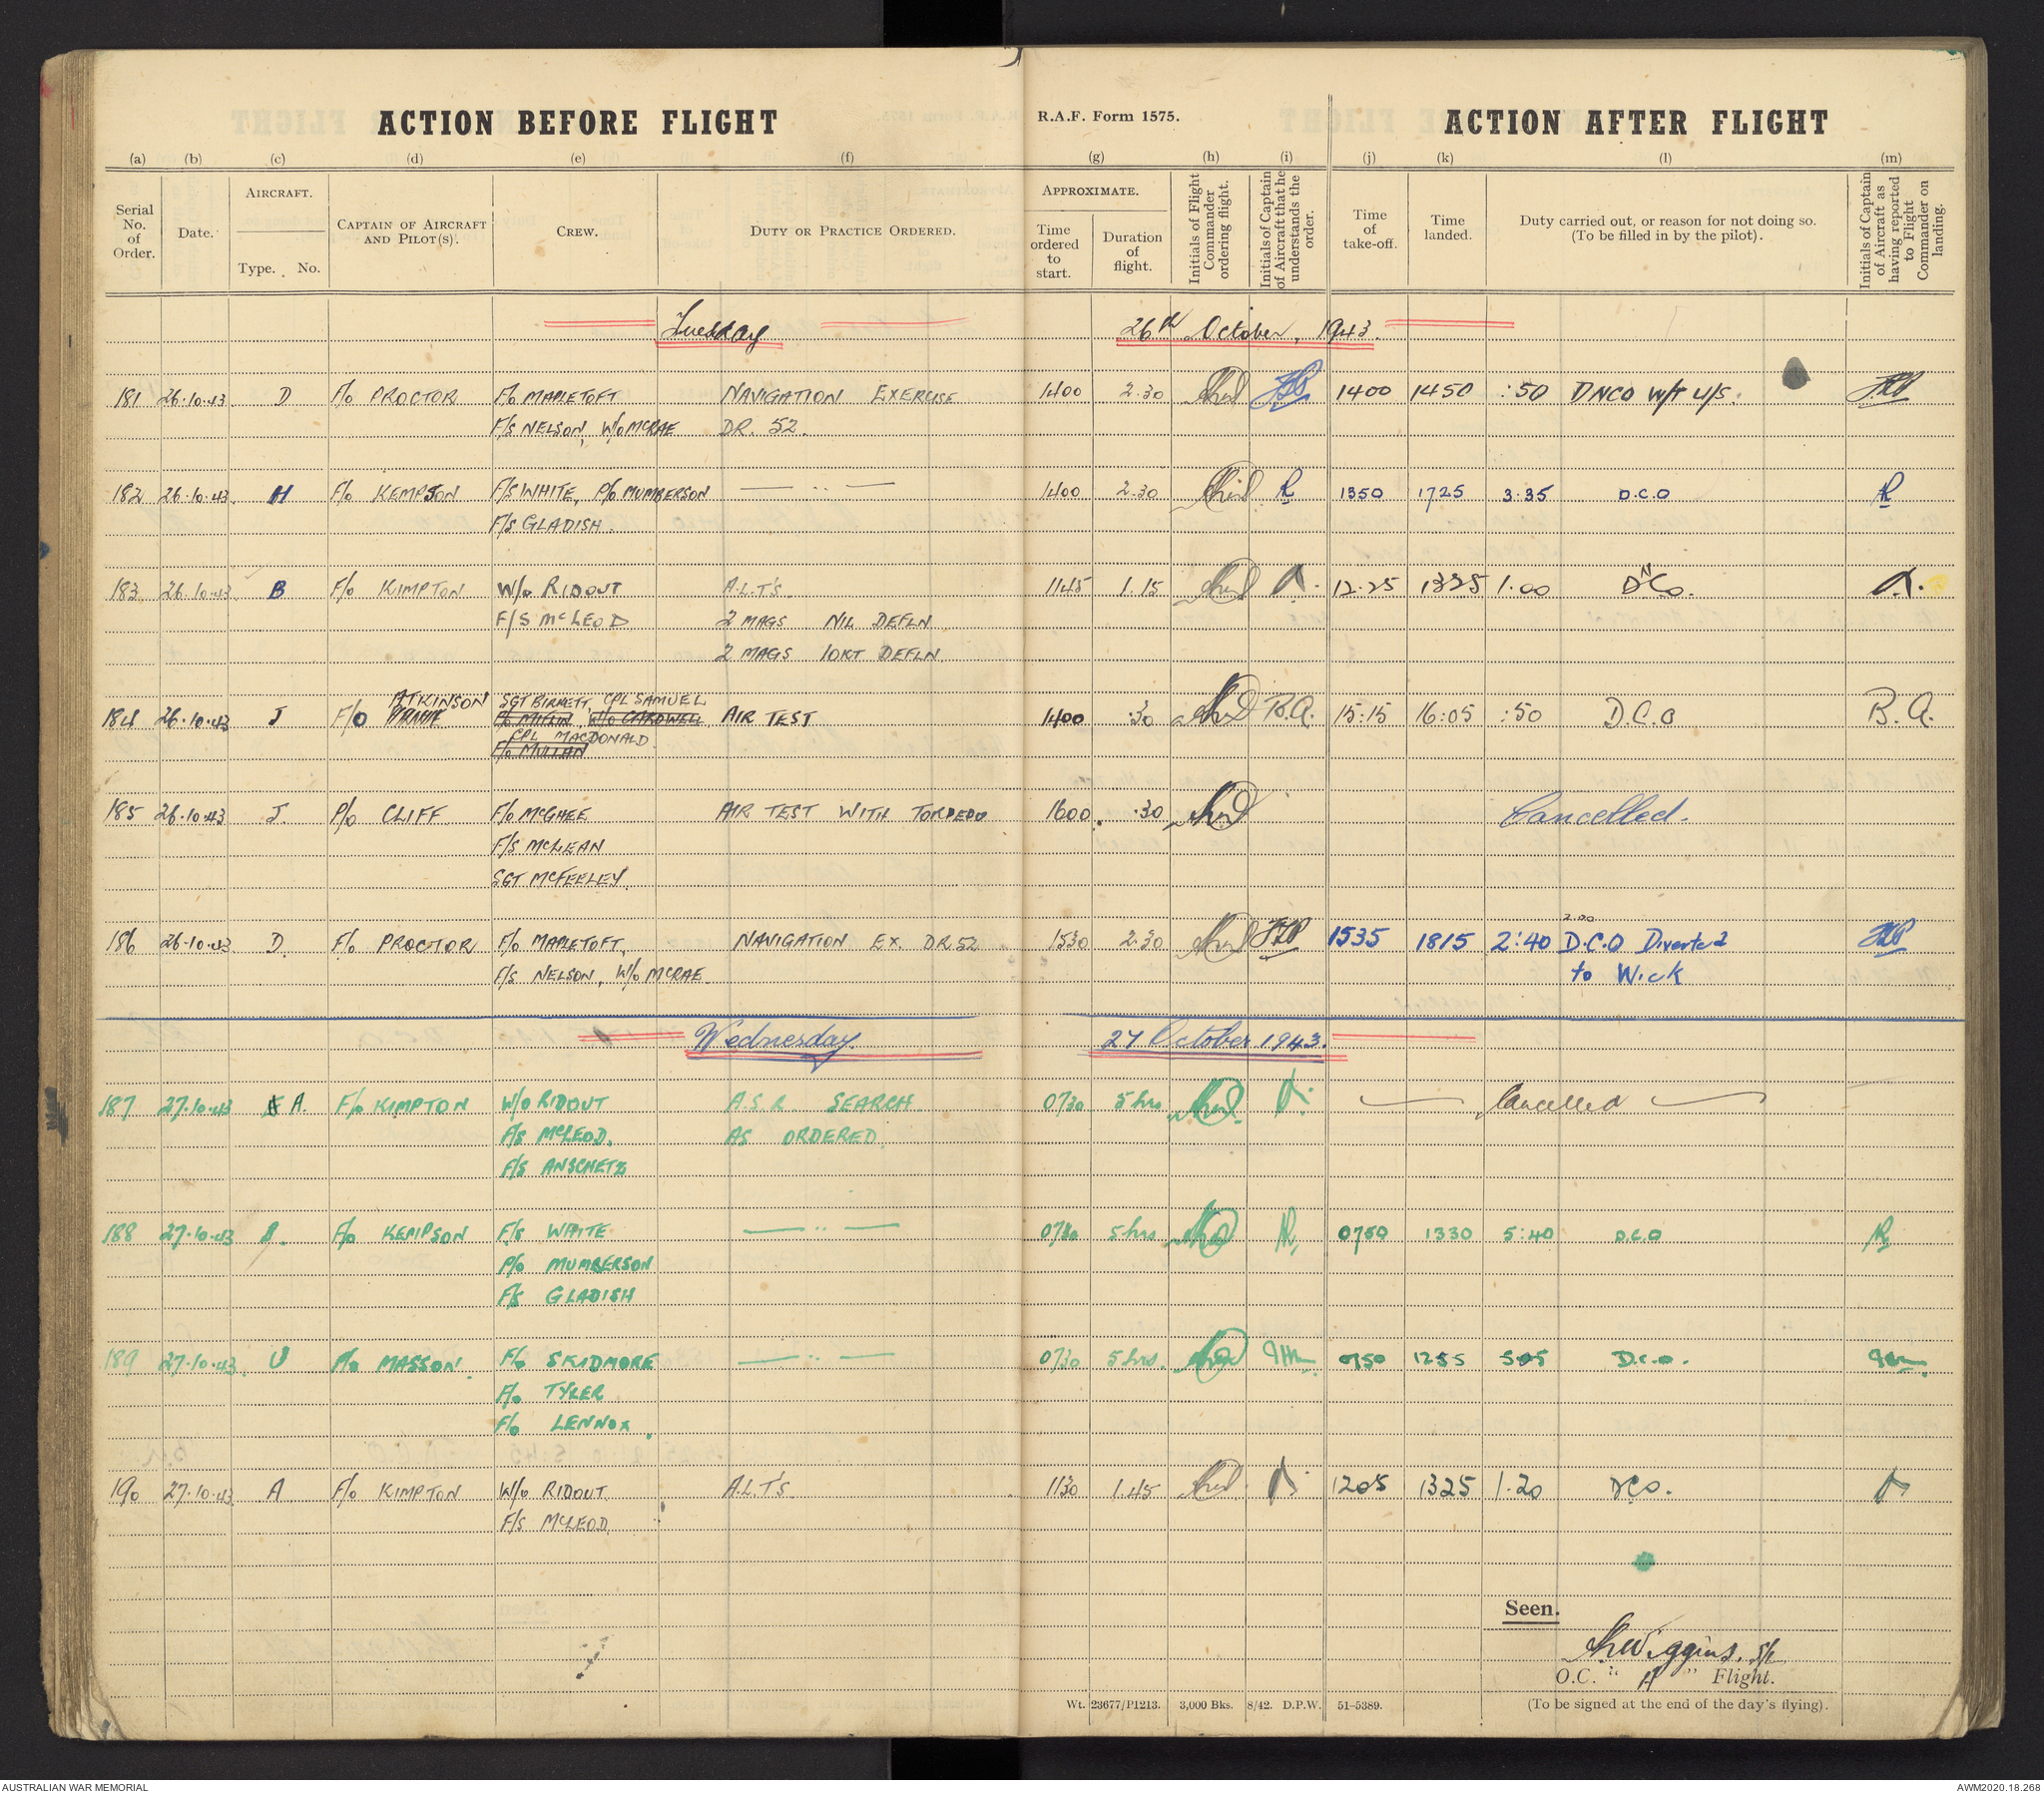 ACTION BEFORE FLIGHT R.A.F. Form 1575. ACTION AFTER FLIGHT
(a) (b) (c) (d) (e) (f) (g) (h) (i) (j) (k) (l) (m)
Serial No. of Order. Date. AIRCRAFT. Type. No. CAPTAIN OF AIRCRAFT AND PILOT(S). CREW. DUTY OR PRACTICE ORDERED. APPROXIMATE. Time ordered to start. Duration of flight. Initials of Flight Commander ordering flight. Initials of Captain of Aircraft that he understands the order. Time of take-off. Time landed. Duty carried out, or reason for not doing so. (To be filled in by the pilot). Initials of Captain of Aircraft as having reported to Flight Commander on landing.
Tuesday 26th October, 1943.
181 26.10.43. D F/O PROCTOR F/O MAPLETOFT NAVIGATION EXERCISE 1400 2.30 1400 1450 :50 DNCO W/T U/S.
F/S NELSON, W/O MCRAE DR. 52.
182 26.10.43. H F/O KEMPSON F/S WHITE, P/O MUMBERSON — .. — 1400 2.30 1350 1725 3.35 D.C.O
F/S GLADISH.
183 26.10.43. B F/O KIMPTON W/O RIDOUT A.L.T'S. 1145 1.15 12.25 1325 1.00 DNCO.
F/S McLEOD 2 MAGS NIL DEFLN
2 MAGS 10KT DEFLN.
ATKINSON SGT BIRKETT, CPL SAMUEL
184 26.10.43 J F/O P/O MIFLIN W/O CARDWELL AIR TEST 1400 .30 B.A. 15:15 16:05 :50 D.C.O B.A.
CPL MACDONALD
F/O MULLAN
185 26.10.43 J. P/O CLIFF F/O McGHEE AIR TEST WITH TORPEDO 1600. .30 Cancelled.
F/S McLEAN
SGT McFEELEY.
2.00
186 26.10.43 D. F/O PROCTOR F/O MAPLETOFT, NAVIGATION EX. DR.52 1530 2.30 1535 1815 2:40 D.C.O Diverted
F/S NELSON, W/O MCRAE. to Wick
Wednesday 27 October 1943.
187 27.10.43 A. F/O KIMPTON W/O RIDOUT A.S.R SEARCH 0730 5 hrs Cancelled
F/S McLEOD. AS ORDERED.
F/S ANSCHETZ
188 27.10.43 F/O KEMPSON F/S WHITE — .. — 0730 5 hrs 0750 1330 5:40 D.C.O
P/O MUMBERSON
F/S GLADISH
189 27.10.43. U P/O MASSON. F/O SKIDMORE — .. — 0730 5 hrs. 0750 1255 505 D.C.O.
F/O TYLER
F/O LENNOX.
190 27.10.43 A F/O KIMPTON W/O RIDOUT A.L.T'S. 1130 1.45 1205 1325 1.20 DCO.
F/S McLEOD.
Seen.
Wiggins. S/L
O.C. "A" Flight.
Wt. 23677/P1213. 3,000 Bks. 8/42. D.P.W. 51-5389. (To be signed at the end of the day's flying).
AUSTRALIAN WAR MEMORIAL AWM2020.18.268